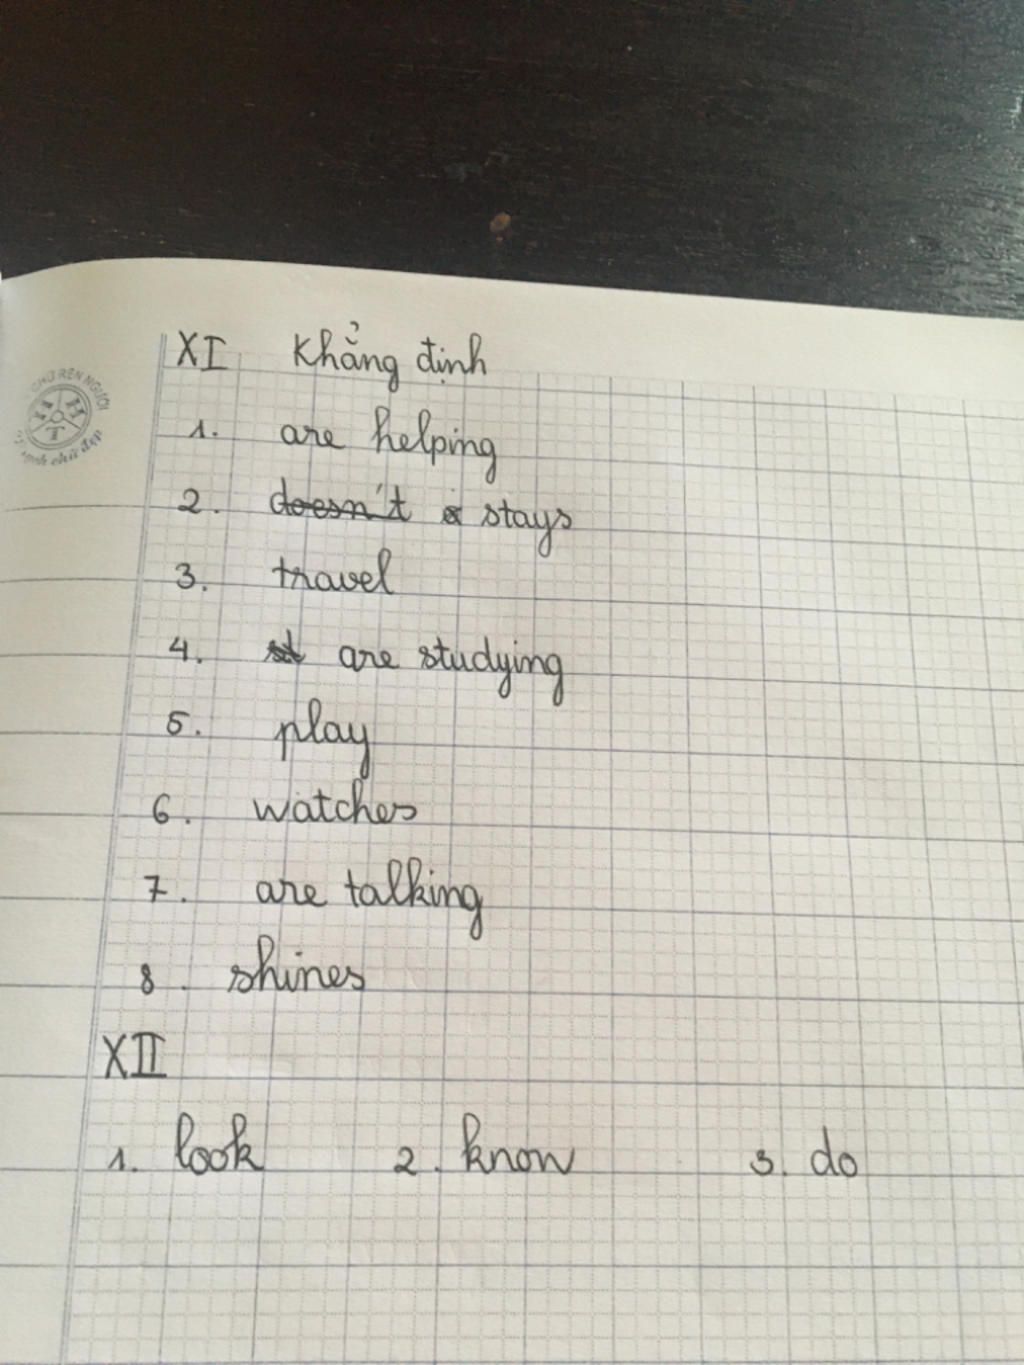 XI Khẳng định
1. are helping
2. doesn't stays
3. travel
4. st are studying
5. play
6. watches
7. are talking
8. shines
XII
1. look 2. know 3. do
CHỮ RÈN NGƯỜI
H H T
chữ đẹp